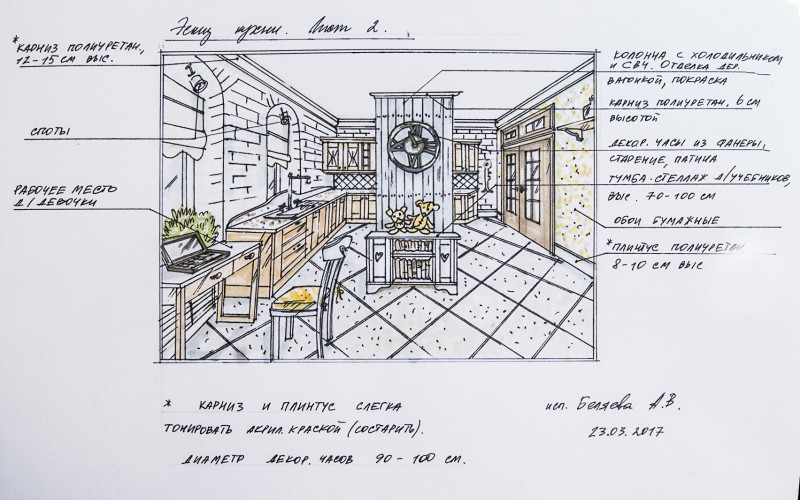 Эскиз кухни. Лист 2.
* КАРНИЗ ПОЛИУРЕТАН,
12-15 СМ ВЫС.
СПОТЫ
РАБОЧЕЕ МЕСТО
Д/ ДЕВОЧКИ
КОЛОННА С ХОЛОДИЛЬНИКОМ
И СВЧ. ОТДЕЛКА ДЕР.
ВАГОНКОЙ, ПОКРАСКА
КАРНИЗ ПОЛИУРЕТАН, 6 СМ
ВЫСОТОЙ
ДЕКОР. ЧАСЫ ИЗ ФАНЕРЫ,
СТАРЕНИЕ, ПАТИНА
ТУМБА-СТЕЛЛАЖ Д/УЧЕБНИКОВ,
ВЫС. 70-100 СМ
ОБОИ БУМАЖНЫЕ
* ПЛИНТУС ПОЛИУРЕТАН
8-10 СМ ВЫС
* КАРНИЗ И ПЛИНТУС СЛЕГКА
ТОНИРОВАТЬ АКРИЛ. КРАСКОЙ (СОСТАРИТЬ).
ДИАМЕТР ДЕКОР. ЧАСОВ 90-100 СМ.
исп. Беляева А.В.
23.03.2017